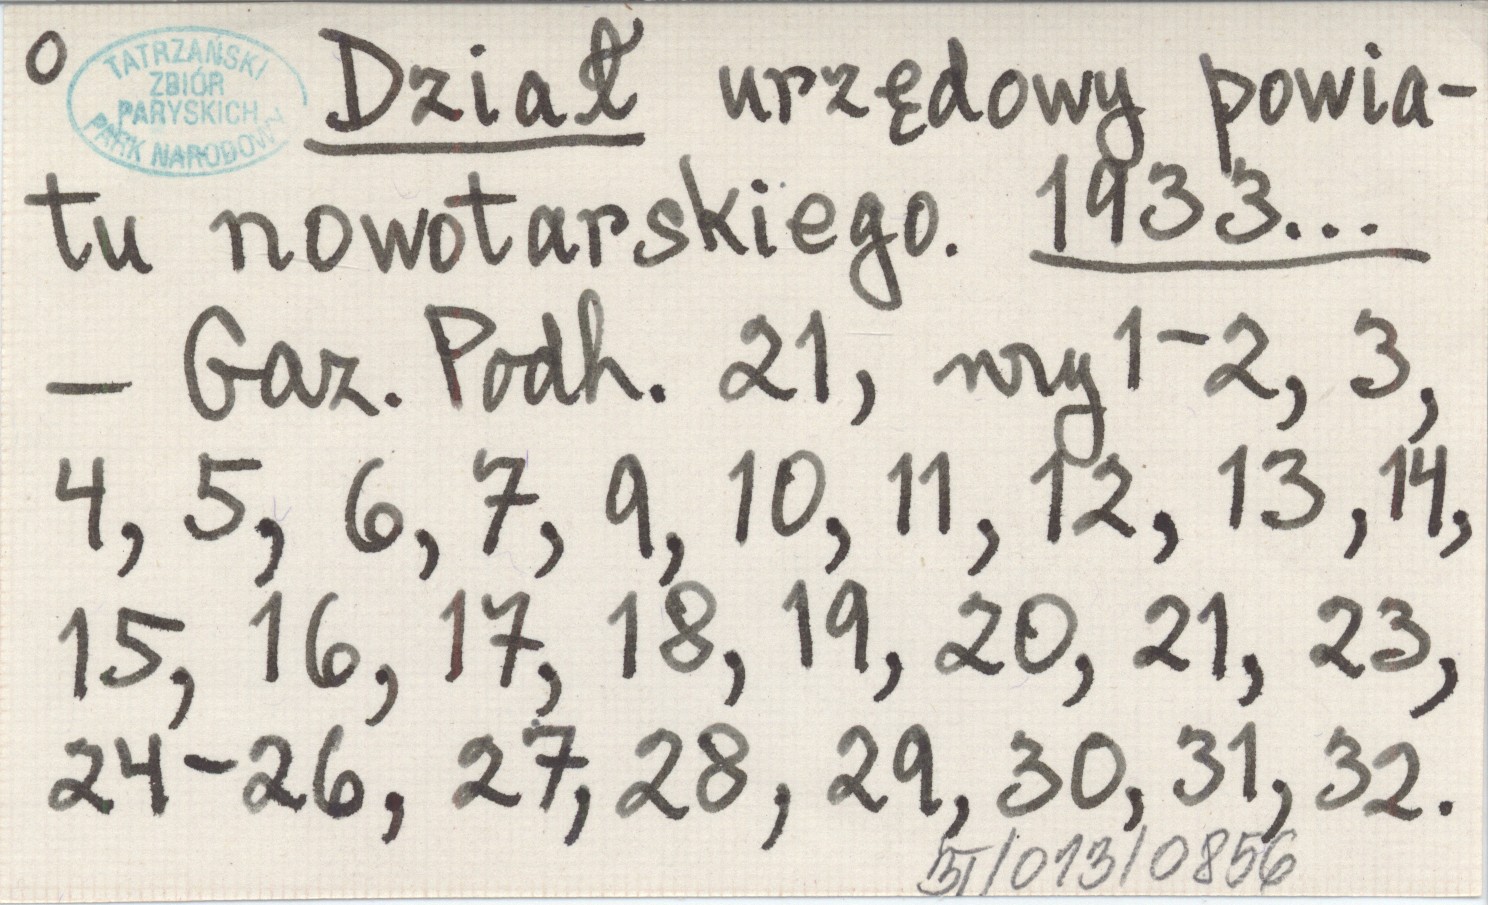 O
TATRZAŃSKI
ZBIÓR
PARYSKICH
PARK NARODOWY
Dział urzędowy powia-
tu nowotarskiego. 1933...
— Gaz. Podh. 21, nry 1-2, 3,
4, 5, 6, 7, 9, 10, 11, 12, 13, 14,
15, 16, 17, 18, 19, 20, 21, 23,
24-26, 27, 28, 29, 30, 31, 32.
/013/0856